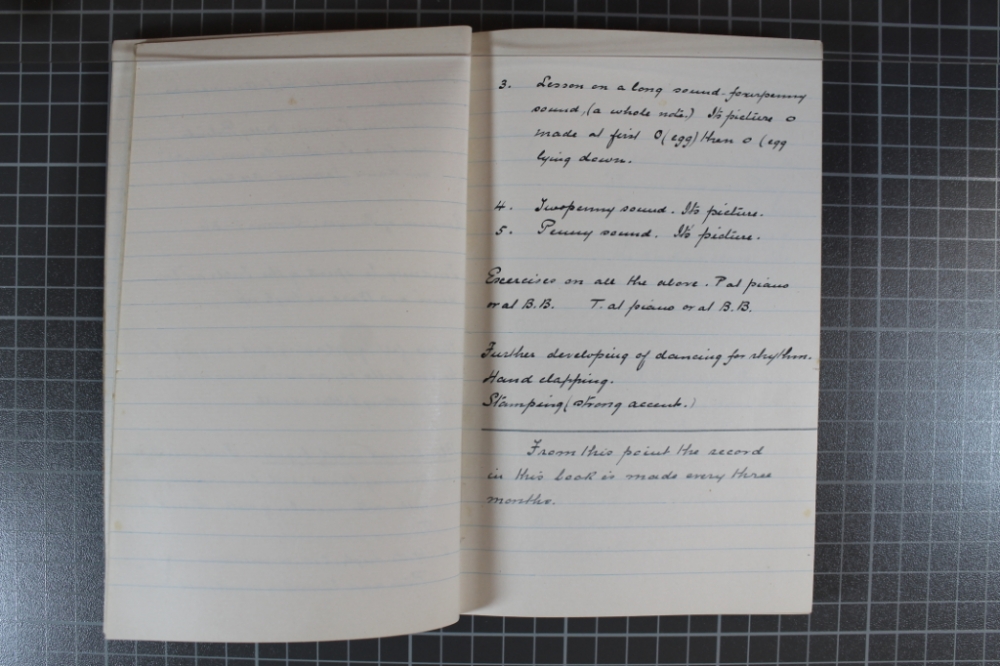 3. Lesson on a long sound - fourpenny
sound, (a whole note.) Its picture o
made at first O (egg) then o (egg
lying down.
4. Twopenny sound. Its picture.
5. Penny sound. Its picture.
Exercises on all the above. P at piano
or at B.B. T. at piano or at B.B.
Further developing of dancing for rhythm.
Hand clapping.
Stamping (strong accent.)
From this point the record
in this book is made every three
months.